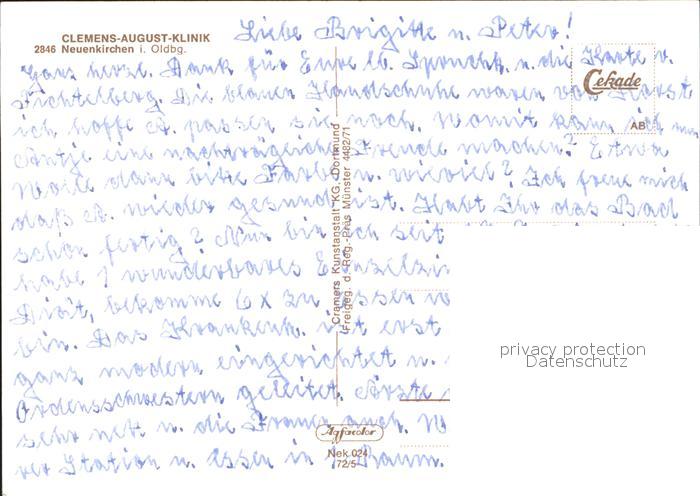 CLEMENS-AUGUST-KLINIK
2846 Neuenkirchen i. Oldbg.
Liebe Brigitte u. Peter!
Ganz herzl. Dank für Eure lb. u. die Karte v.
Fichtelberg. Die blauen Handschuhe waren von Horst
ich hoffe passen sie nach. Womit kann ich nur
Antje eine Freude machen? Etwa
Wolle dann bitte Farbe u. wieviel? Ich freue mich
daß wieder gesund ist. Habt Ihr das Bad
schon fertig? Nun bin ich seit
habe 1 wunderbares
Diät, bekomme 6 x zu essen
bin. Das Krankenh. ist erst
ganz modern eingerichtet u.
Ordensschwestern geleitet. Ärzte
sehr nett u. die Frauen auch.
Station u. essen in 1 Raum.
Cekade
AB
Cramers Kunstanstalt KG. Dortmund
Freigeg. d. Reg.-Präs Münster 4482/71
Agfacolor
Nek 024
72/5
privacy protection
Datenschutz